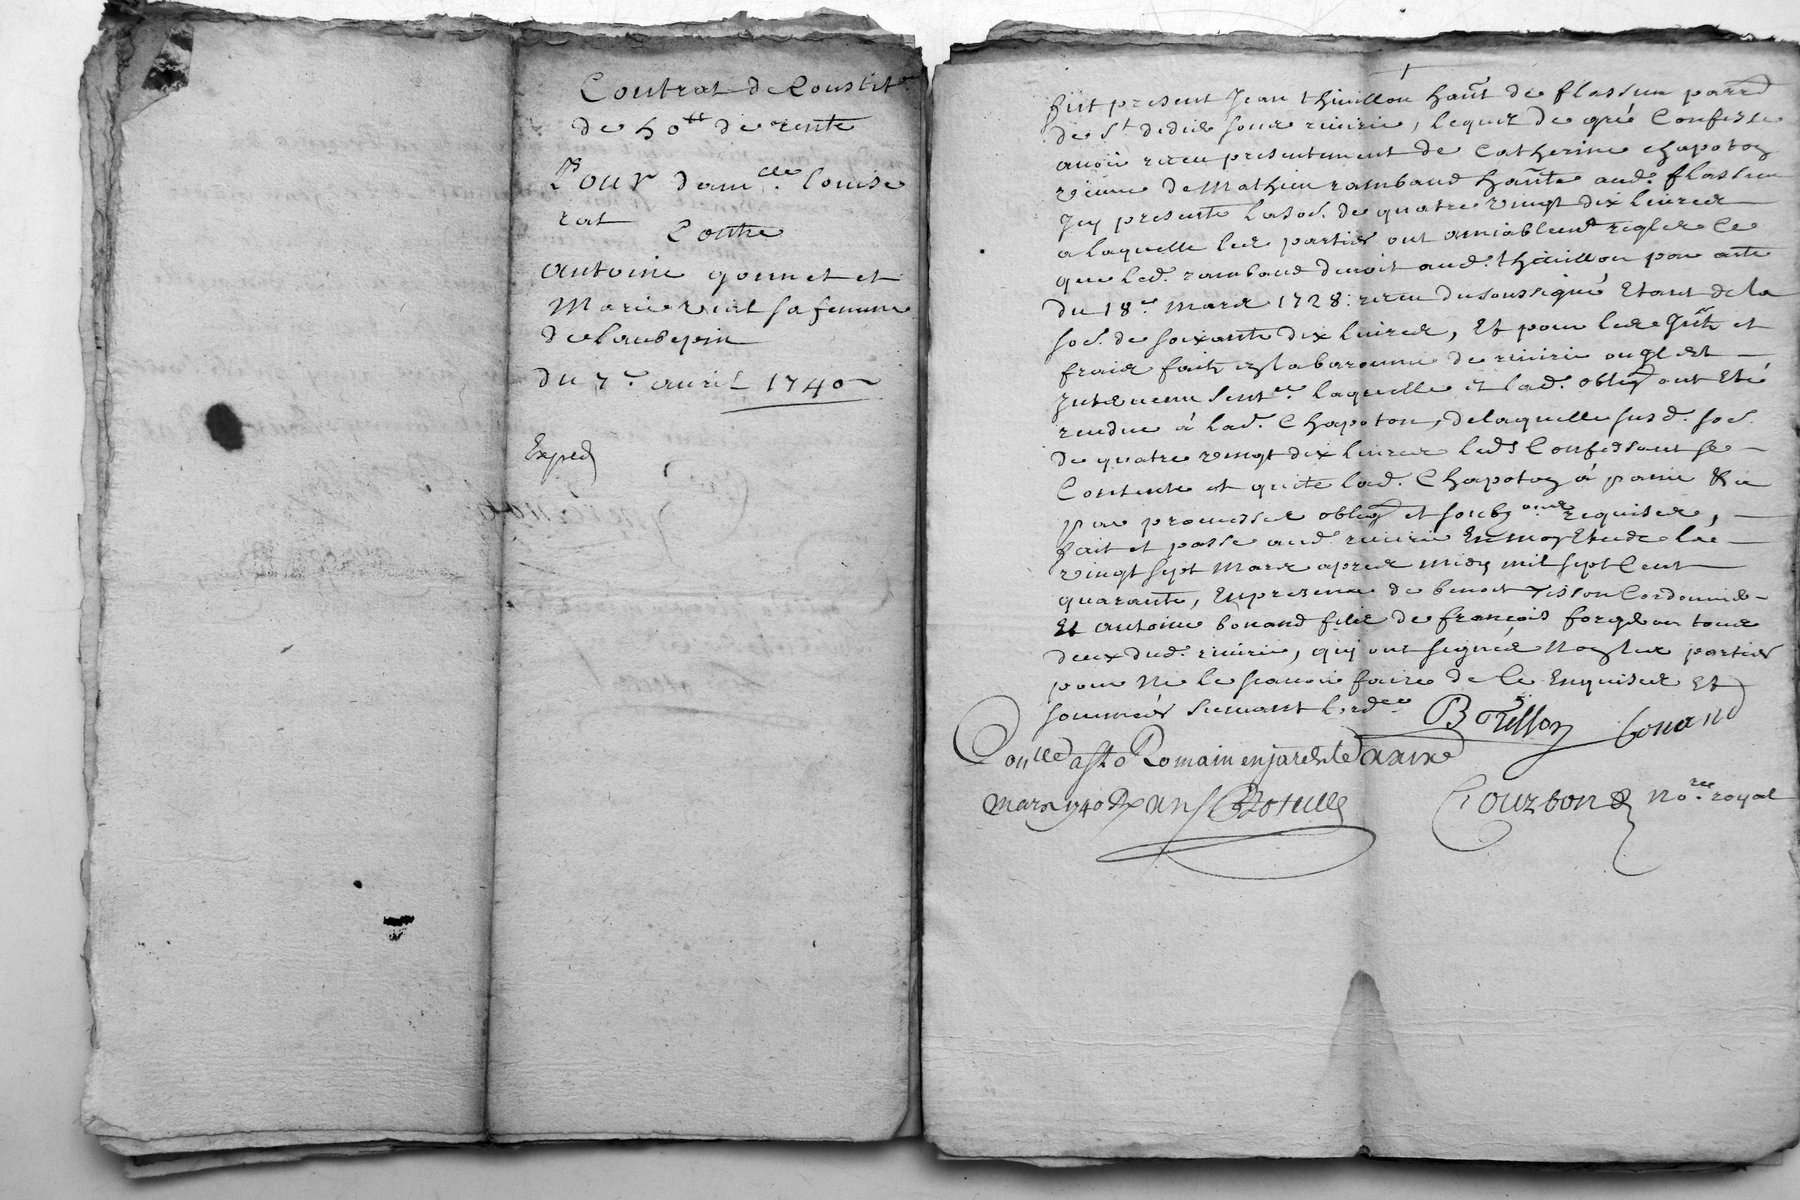 Contrat de Constit^on
de 50^tt de rente
Pour dam^lle. louise
rat Contre
antoine gonnet et
Marie viat sa femme
de laubepin
du 7^e avril 1740
Exped
fut present Jean thivillon hant de flassieu parr
de St didier sous riverie, lequel de gré Confesse
avoir receu presentement de Catherine chapoton
veuve de Mathieu rambaud hante aud. flassieu
Jcy presente la so'. de quatre vingt dix livres
a laquelle les parties ont amiablem^t regler Ce
que led. rambaud devoit aud. thivillon par acte
du 18^e. Mars 1728. receu du soussigné Etant de la
so'. de soixante dix livres, Et pour les Jnts et
frais faits en la baronnie de riviere ou il est
Jntervenu sent^ce. laquelle et lad. oblig ont Eté
rendue à lad. Chapoton, de laquelle susd. so'.
de quatre vingt dix livres led. Confessant se
Contente et quitte lad. Chapoton à peine &a
par promesses oblig et soubz^ons requises,
fait et passé aud. riverie En moy Etude le
vingt sept Mars apres midy mil sept Cent
quarante, En presence de benoit tisson Cordonnier
Et antoine bonand fils de françois forgeron tous
deux dud. riverie, qui ont signés Non les parties
pour Ne le scavoir faire de Ce Enquises Et
sommées suivant l'ord^ce
B Tisson bonand
Con^lle a St Romain en jarest le
mars 1740
Courbon No^re. royal